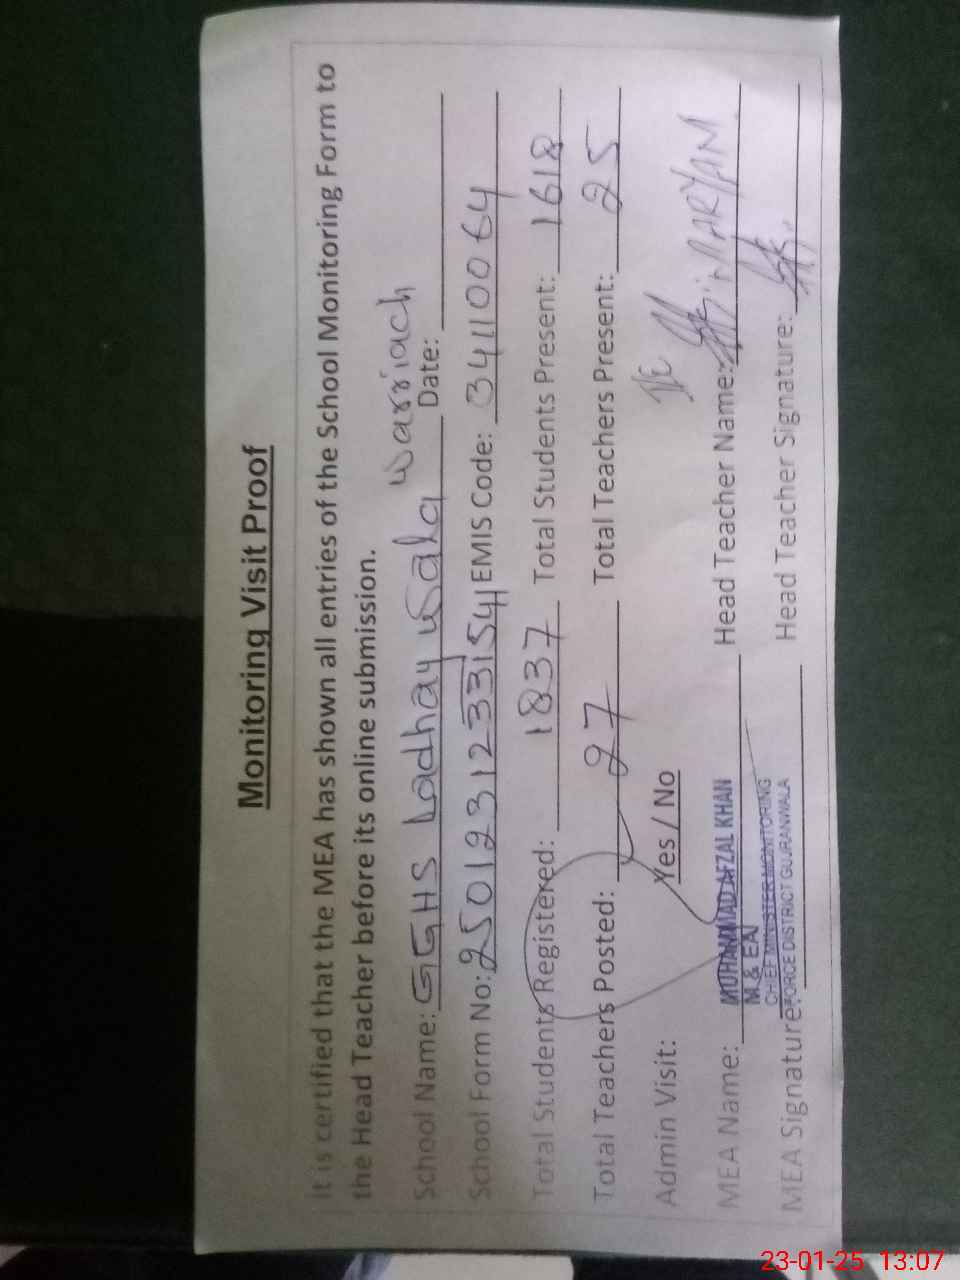 Monitoring Visit Proof
It is certified that the MEA has shown all entries of the School Monitoring Form to
the Head Teacher before its online submission.
School Name: GGHS Ladhay Wala Warriach Date:
School Form No: 25012312331541 EMIS Code: 34110064
Total Students Registered: 1837 Total Students Present: 1618
Total Teachers Posted: 27 Total Teachers Present: 25
Admin Visit: Yes / No
MEA Name: MUHAMMAD AFZAL KHAN Head Teacher Name: MARYAM
M & EA
CHIEF MINISTER MONITORING
FORCE DISTRICT GUJRANWALA
MEA Signature: Head Teacher Signature:
23-01-25 13:07